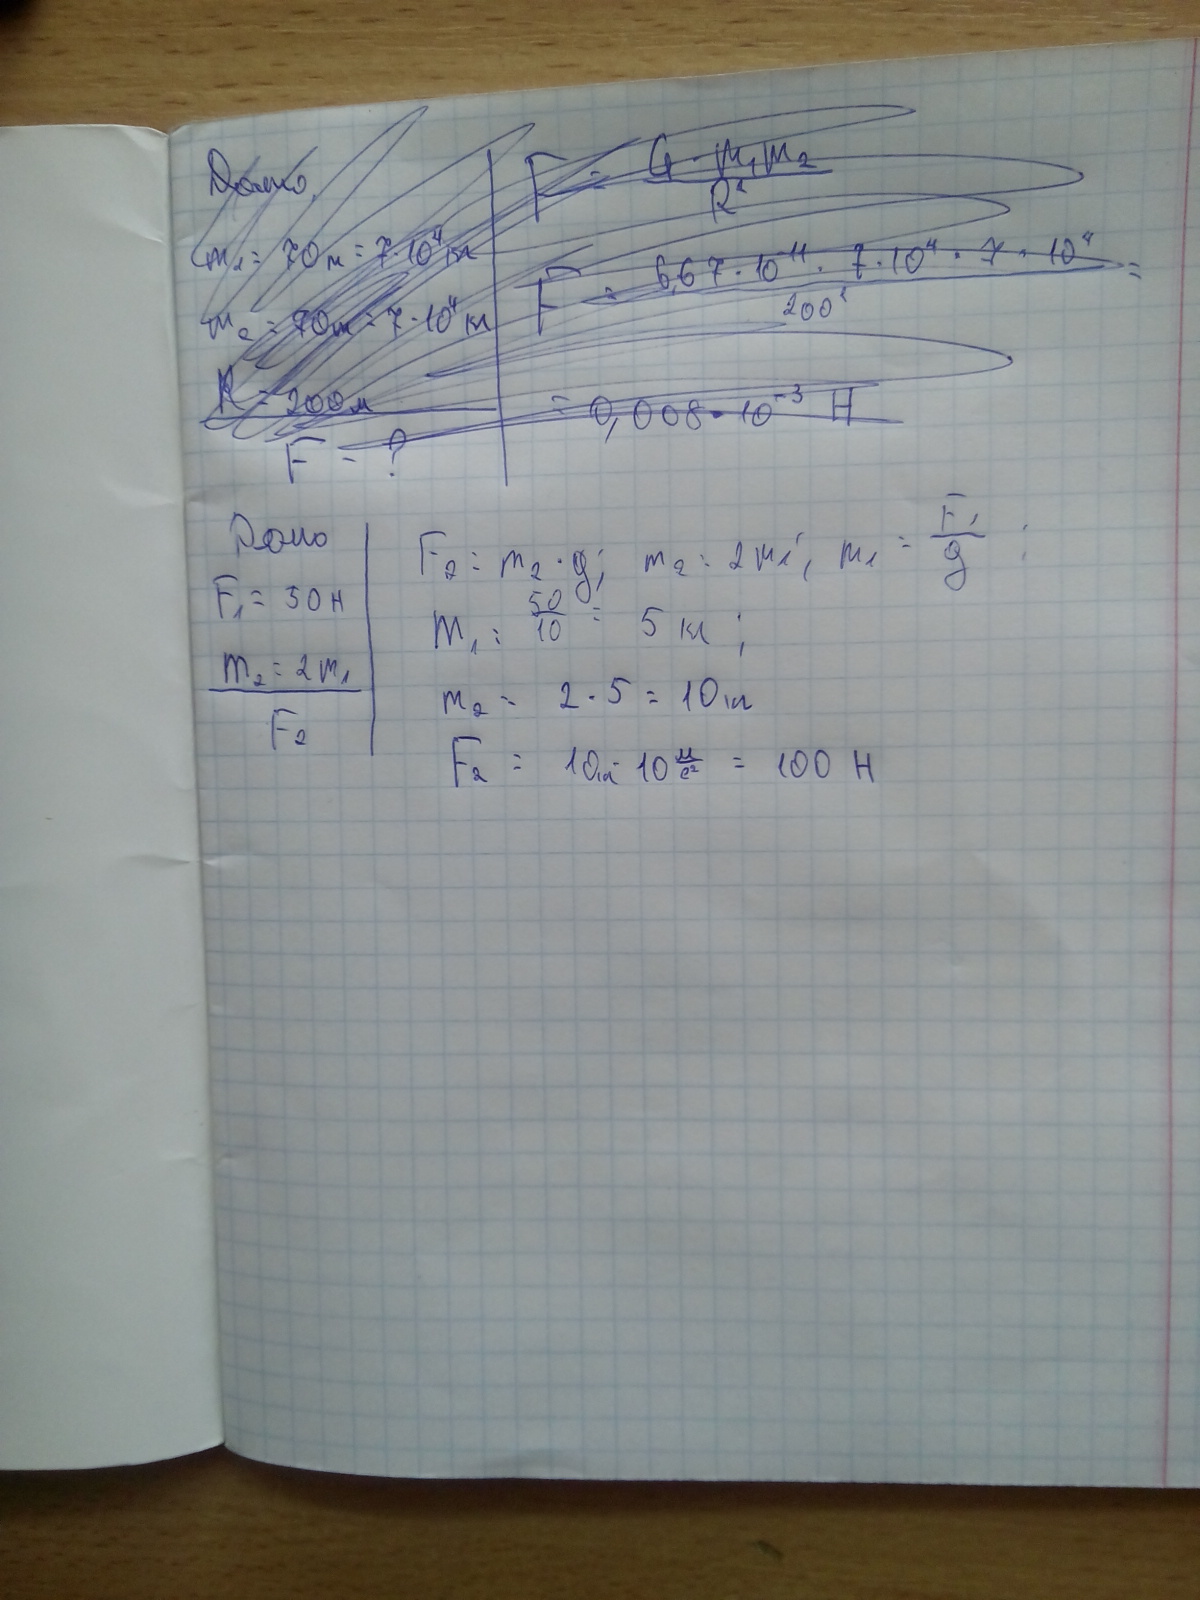 Дано
m₁ = 70т = 7·10⁴ кг
m₂ = 70т = 7·10⁴ кг
R = 200м
F - ?
F = G · m₁m₂ / R²
F = 6,67·10⁻¹¹ · 7·10⁴ · 7 · 10⁴ / 200² =
= 0,008·10⁻³ Н
Дано
F₁ = 50 Н
m₂ = 2m₁
F₂
F₂ = m₂·g; m₂ = 2m₁; m₁ = F₁/g ;
m₁ = 50/10 = 5 кг ;
m₂ = 2·5 = 10 кг
F₂ = 10кг · 10 м/с² = 100 Н